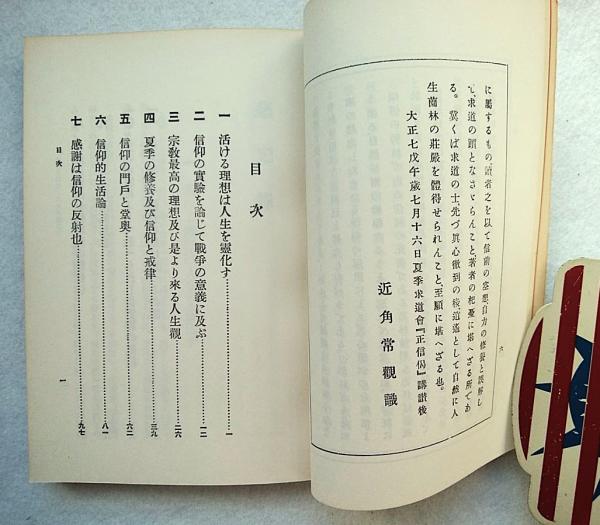 に屬するもの、讀者之を以て信前の空想、自力の修養と誤解し
て、求道の躓となさゞらんこと、著者の杞憂に堪へざる所であ
る。冀くば求道の士、先づ眞心徹到の稜道遙として自然に人
生薗林の莊嚴を體得せられんこと、至願に堪へざる也。
大正七戊午歲七月十六日夏季求道會『正信偈』講讃後
近角常觀識
六
目次
一 活ける理想は人生を靈化す……一
二 信仰の實驗を論じて戰爭の意義に及ぶ……一二
三 宗敎最高の理想及び是より來る人生觀……二六
四 夏季の修養及び信仰と戒律……三九
五 信仰の門戶と堂奧……六二
六 信仰的生活論……八一
七 感謝は信仰の反射也……九七
目次
一